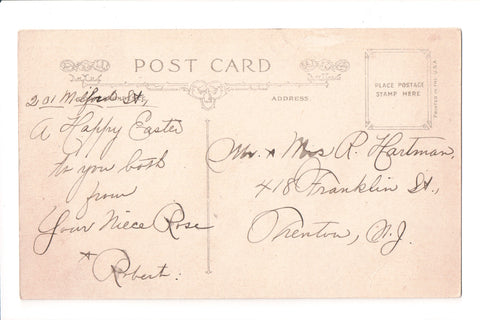 POST CARD
PLACE POSTAGE
STAMP HERE
PRINTED IN THE U.S.A.
ADDRESS
201 Milford St,
A Happy Easter
to you both
from
Your Niece Rose
+
Robert.
Mr. + Mrs R. Hartman,
418 Franklin St.,
Trenton, N.J.